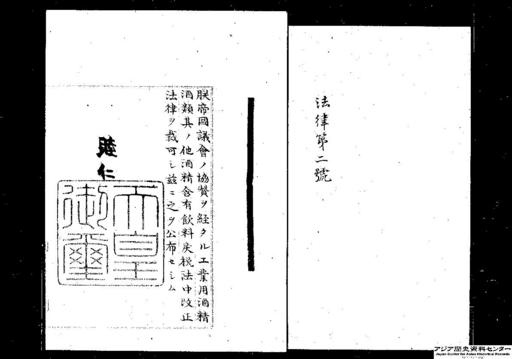 法律第二號
朕帝國議會ノ協賛ヲ經タル工業用酒精
酒類其ノ他酒精含有飲料戻税法中改正
法律ヲ裁可シ茲ニ之ヲ公布セシム
睦仁
天皇
御璽
アジア歴史資料センター
Japan Center for Asian Historical Records